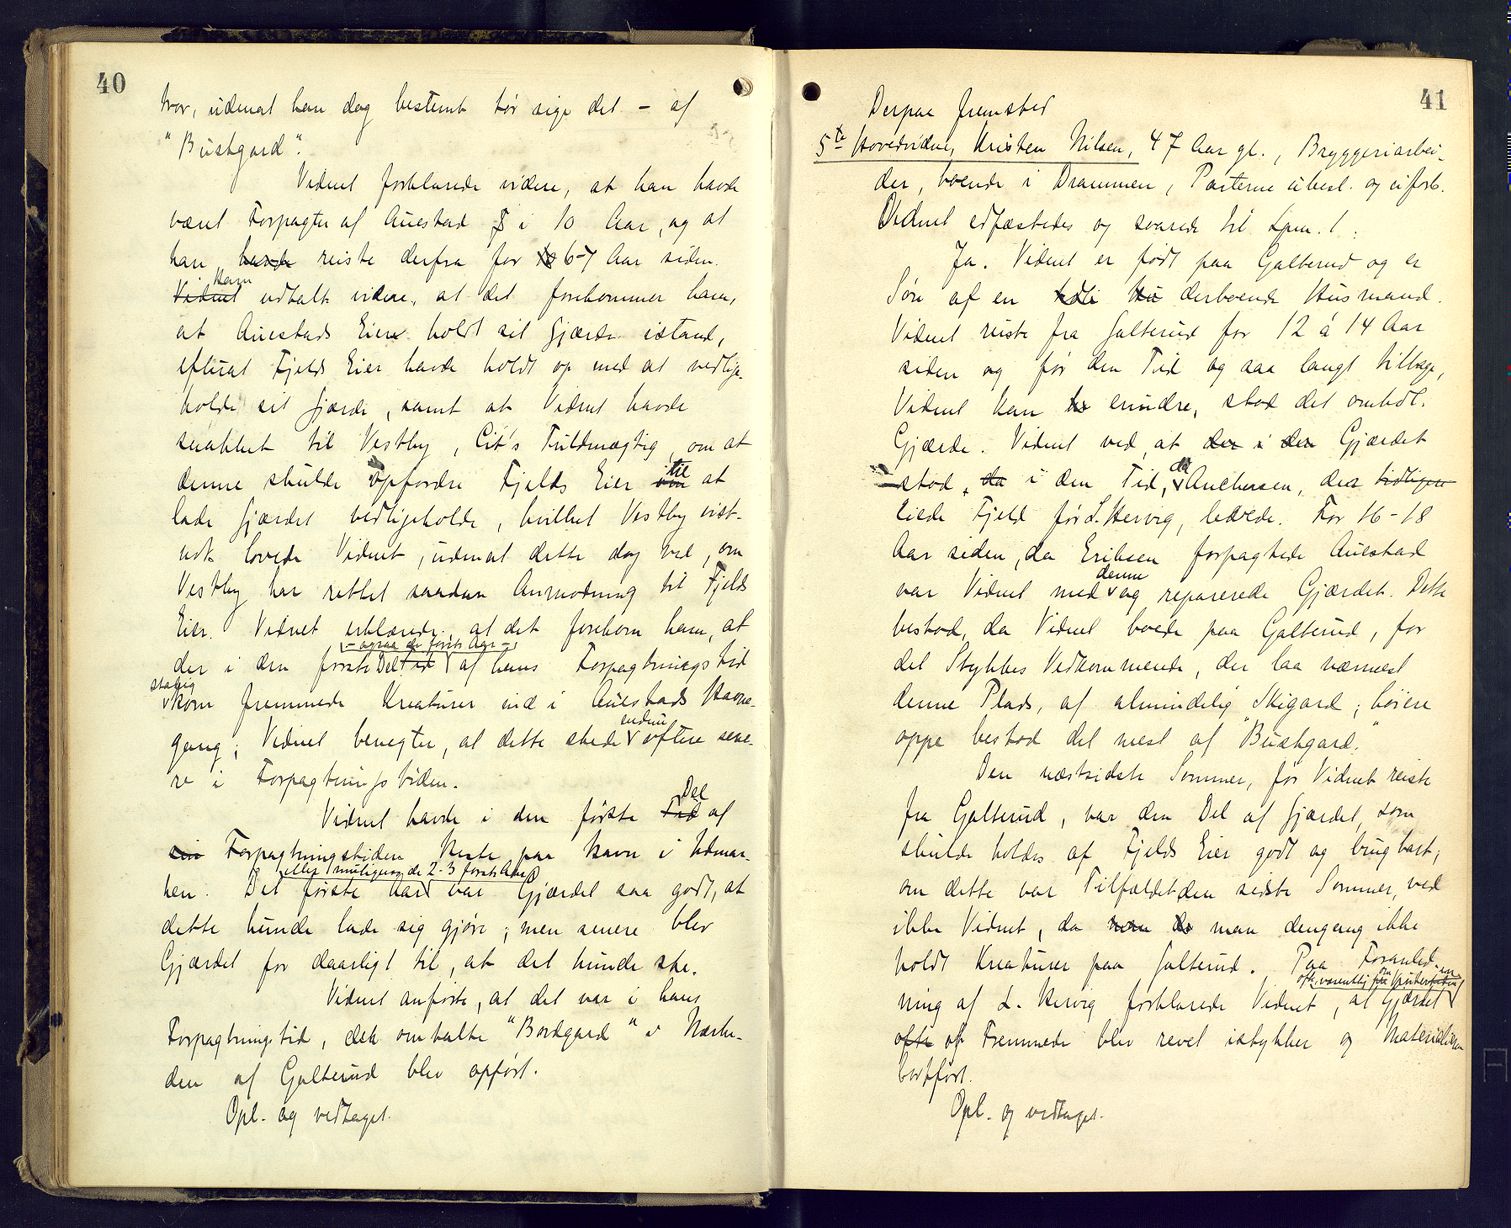 40
tror, uden at han dog bestemt tør sige det – af
"Buskgard".
Vidnet forklarede videre, at han havde
været Forpagter af Auestad i 10 Aar, og at
han havde reiste derfra for 6-7 Aar siden.
Vidnet Ham udtalt videre, at det forekommer ham,
at Auestads Eier holdt sit Gjærde istand,
efterat Fjelds Eier havde holdt op med at vedlige-
holde sit Gjærde, samt at Vidnet havde
snakket til Vestby, Cit's Fuldmægtig, om at
denne skulde opfordre Fjelds Eier om til at
lade Gjærdet vedligeholde, hvilket Vestby vist-
nok lovede Vidnet, uden at dette dog ved, om
Vestby har rettet saadan Anmodning til Fjelds
Eier. Vidnet erklærede, at det forekom ham, at
der i den første Del af hans Forpagtningstid
stadig kom fremmede Kreaturer ind i Auestads Havne-
gang; Vidnet benegter, at dette skede endnu oftere sene-
re i Forpagtningstiden.
Vidnet havde i den første Tid Del af
sin Forpagtningstiden Heste paa Havn i Udmar-
ken. Det første Aar eller muligens de 2-3 første Aar var Gjærdet saa godt, at
dette kunde lade sig gjøre; men senere blev
Gjærdet for daarligt til, at det kunde ske.
Vidnet anførte, at det var i hans
Forpagtningstid, det omtalte "Bordgard" i Nærhe-
den af Galterud blev opført.
Opl. og vedtaget.
41
Derpaa fremstod
5te Hovedvidne, Kristen Nilsen, 47 Aar gl., Bryggeriarbei-
der, boende i Drammen, Parterne ubesl. og uforb.
Vidnet edfæstedes og svarede til Spm. 1:
Ja. Vidnet er født paa Galterud og er
Søn af en derboende Husmand.
Vidnet reiste fra Galterud for 12 á 14 Aar
siden og før den Tid og saa langt tilbage,
Vidnet kan erindre, stod det omhdl.
Gjærde. Vidnet ved, at der i den Gjærdet
stod, da i den Tid, da Anchersen, der tidligere
eiede Fjeld før L. Hervig, levede. For 16-18
Aar siden, da Eriksen forpagtede Auestad
var Vidnet med denne og reparerede Gjærdet. Dette
bestod, da Vidnet boede paa Galterud, for
det Stykkes Vedkommende, der laa nærmest
denne Plads, af almindelig Skigard; høiere
oppe bestod det mest af "Buskgard."
Den næstsidste Sommer, før Vidnet reiste
fra Galterud, var den Del af Gjærdet, som
skulde holdes af Fjelds Eier godt og brugbart;
om dette var Tilfældet den sidste Sommer, ved
ikke Vidnet, da man dengang ikke
holdt Kreaturer paa Galterud. Paa Foranled-
ning af L. Hervig forklarede Vidnet, at Gjærdet
ofte af Fremmede blev revet istykker og Materialerne
bortført.
Opl. og vedtaget.